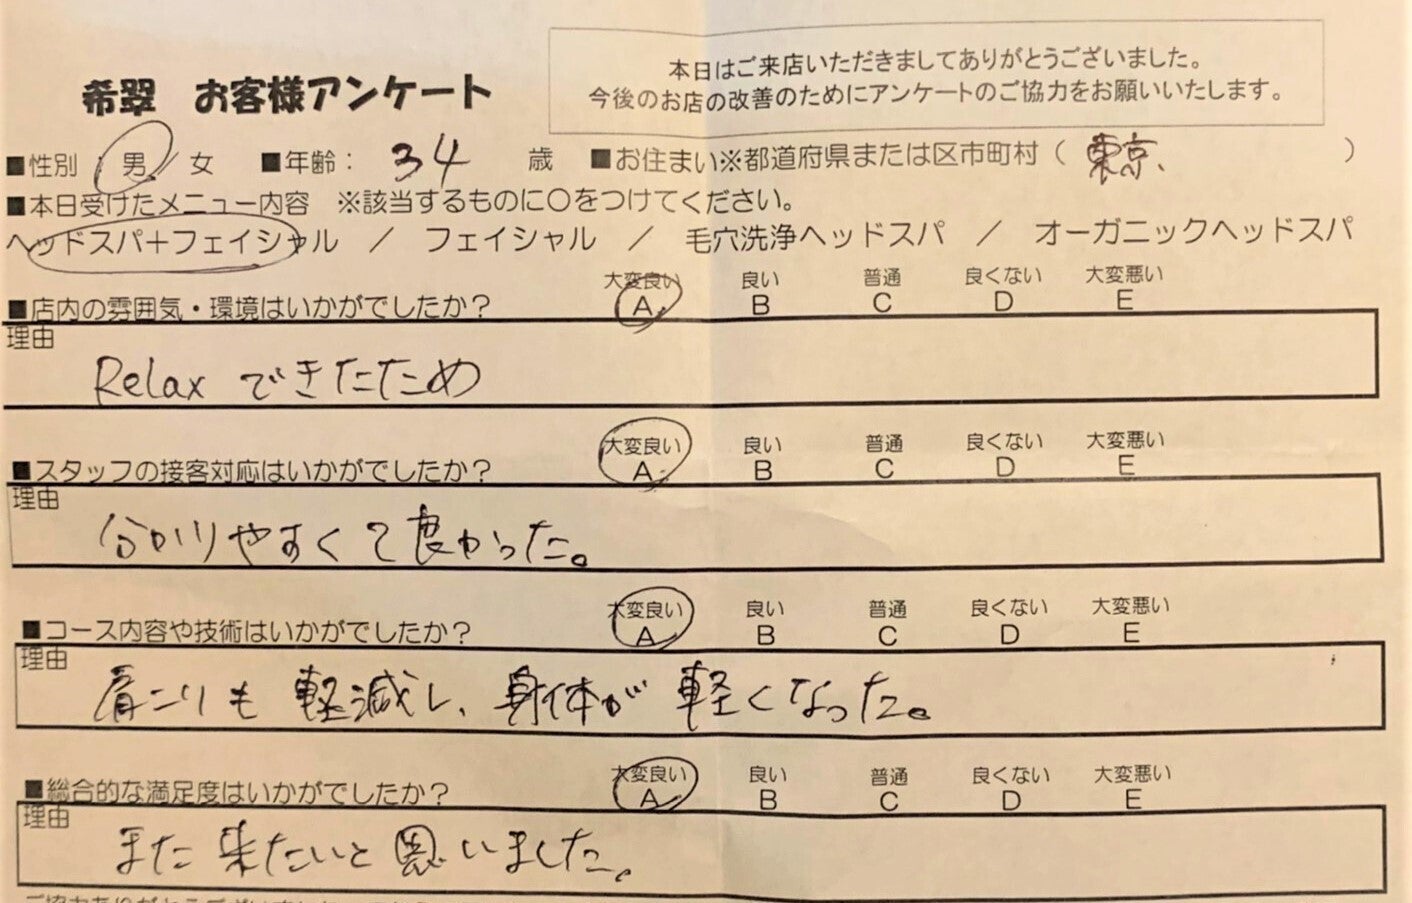 希翠 お客様アンケート
本日はご来店いただきましてありがとうございました。
今後のお店の改善のためにアンケートのご協力をお願いいたします。
■性別：男／女 ■年齢：34 歳 ■お住まい※都道府県または区市町村（東京、）
■本日受けたメニュー内容 ※該当するものに〇をつけてください。
ヘッドスパ＋フェイシャル ／ フェイシャル ／ 毛穴洗浄ヘッドスパ ／ オーガニックヘッドスパ
大変良い 良い 普通 良くない 大変悪い
■店内の雰囲気・環境はいかがでしたか？ A B C D E
理由
Relax できたため
大変良い 良い 普通 良くない 大変悪い
■スタッフの接客対応はいかがでしたか？ A B C D E
理由
分かりやすくて良かった。
大変良い 良い 普通 良くない 大変悪い
■コース内容や技術はいかがでしたか？ A B C D E
理由
肩こりも軽減し、身体が軽くなった。
大変良い 良い 普通 良くない 大変悪い
■総合的な満足度はいかがでしたか？ A B C D E
理由
また来たいと思いました。